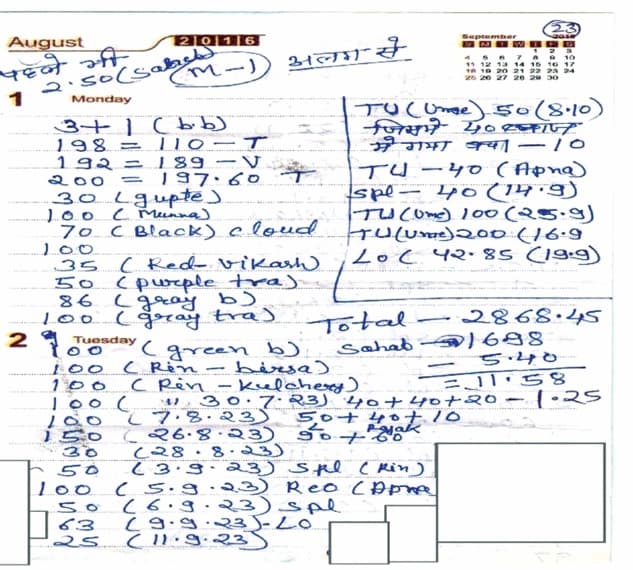 23
August 2016
September 2016
S M T W T F S
1 2 3
4 5 6 7 8 9 10
11 12 13 14 15 16 17
18 19 20 21 22 23 24
25 26 27 28 29 30
पहले भी
2.50 (Sahab) (M-1) अलग से
1 Monday
3+1 (b.b)
198 = 110 - T
192 = 189 - V
200 = 197.60 T
30 (gupte)
100 (Munna)
70 (Black) cloud
100
35 (Red- Vikash)
50 (purple tra)
86 (gray b)
100 (gray tra)
TU (Ume) 50 (8.10)
जिसमें 40
में गया - 10
TU - 40 (Apna)
Spl - 40 (14.9)
TU (Ume) 100 (25.9)
TU (Ume) 200 (16.9
LO ( 42.85 (19.9)
Total - 2868.45
Sahab - 1698
- 5.40
= 11.58
2 Tuesday
100 (green b)
100 (Rin - birsa)
100 (Rin - Kulchery)
100 ( " 30.7.23) 40+40+20 - 1.25
100 (7.8.23) 50+40+10
150 (26.8.23) 90 + 60
30 (28.8.23)
50 (3.9.23) Spl (Rin)
100 (5.9.23) Reo (Apna
50 (6.9.23) Spl
63 (9.9.23) - LO
25 (11.9.23)